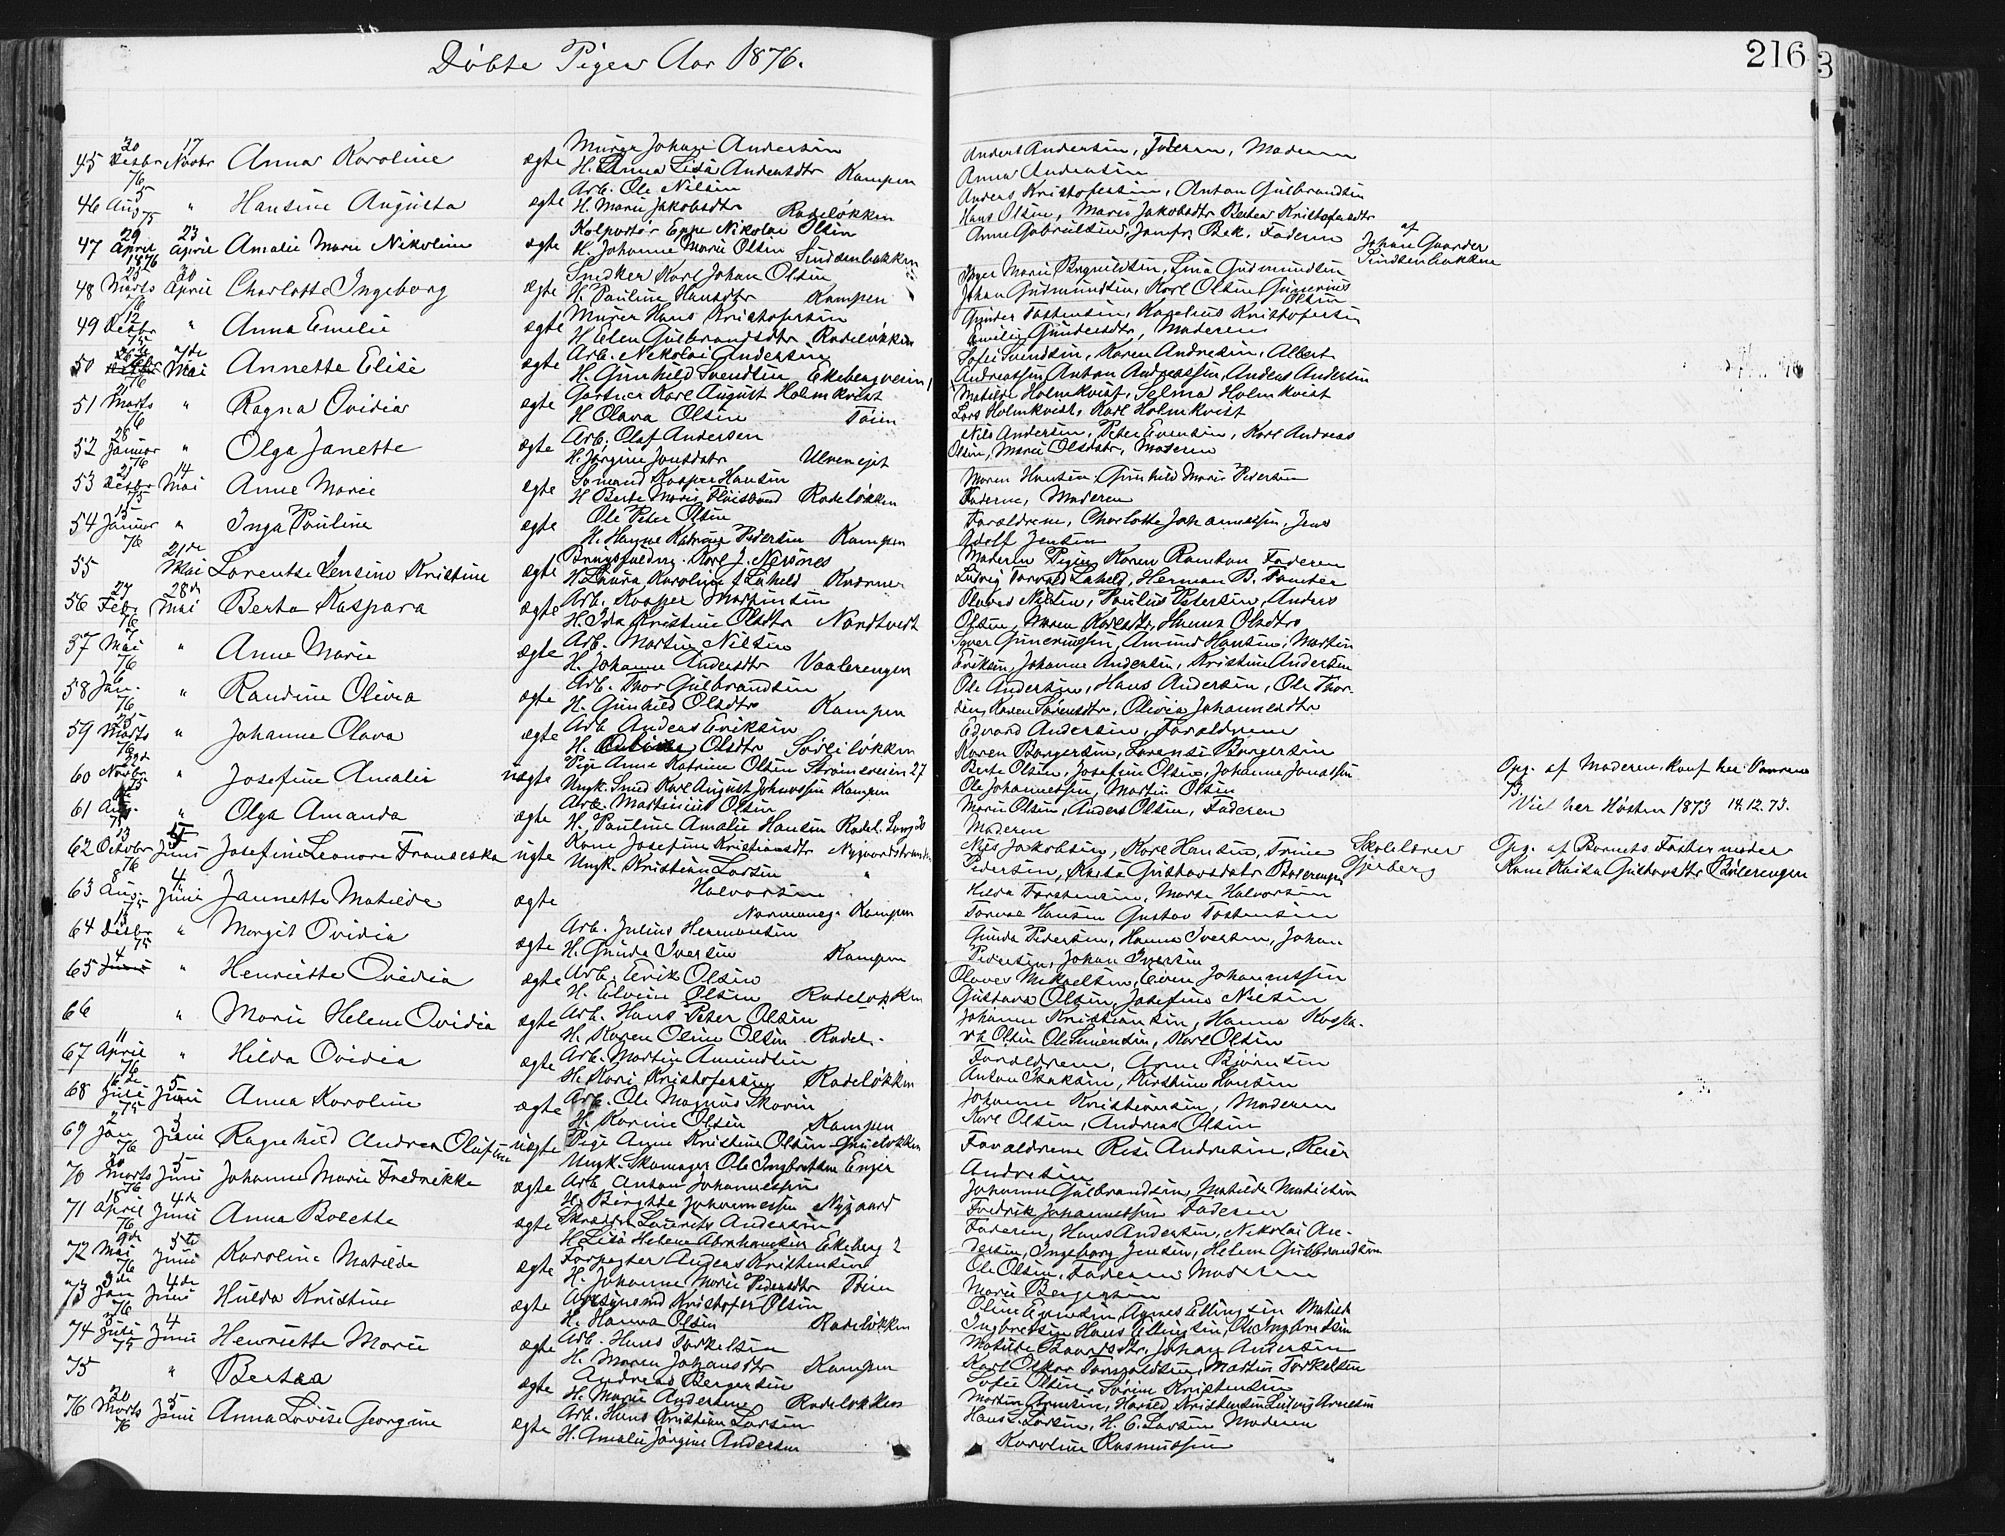 Døbte Piger Aar 1876.
216
45 20 Decbr 76 17 Novbr Anna Karoline ægte Murer Johan Andersen
H. Anna Lisa Andersdtr Kampen
Anders Andersen, Faderen, Moderen
Anna Andersen
46 5 Aug 75 " Hansine Augusta ægte Arb. Ole Nilsen
H. Marie Jakobsdtr Rodeløkken
Anders Kristofersen, Anton Gulbrandsen
Hans Olsen, Marie Jakobsdtr Kristofersdtr
47 29 April 1876 23 April Amalie Marie Nikoline ægte Kolportør Nikolai Olsen
H. Johanne Marie Olsen
Anne Gabrielsen, Jomfr. Bek, Faderen af Johan Gaarder
48 Marts 30 April Charlotte Ingeborg ægte Snedker Karl Johan Olsen
H. Pauline Hansdtr Kampen
Inger Marie Lina Gudmundsen
Johan Gudmundsen, Karl Olsen
Olsen
49 12 Decbr 75 " Anna Emelie ægte Murer Hans Kristofersen
H. Elen Gulbrandsdtr Rodeløkken
Gunder Tostensen, Kristofersen
Emilie Gundersdtr, Moderen
50 7de Mai Annette Elise ægte Arb. Nikolai Andersen
H. Gunhild Svendsen Ekebergveien
Sofie Svendsen, Karen Andresen, Albert
Andreassen, Anton Andreassen, Anders Andersen
51 21 Marts 76 " Ragna Ovidia ægte Gartner Karl August Holmkvist
H. Olava Olsen Tøien
Matilde Holmkvist, Selma Holmkvist
Lars Holmkvist, Karl Holmkvist
52 28 Januar 76 " Olga Janette ægte Arb. Olaf Andersen
H. Jørgine Jonsdatr
Nils Andersen, Peter Evensen, Karl Andreas
Olsen, Marie Olsdatr, Moderen
53 21 Decbr 75 14 Mai Anne Marie ægte Sømand Kasper Hansen
H. Berte Marie Rodeløkken
Maren Hansen, Gunhild Marie Pedersen
Faderen, Moderen
54 15 Januar 76 " Inga Pauline ægte Ole Peter Olsen
H. Hanne Katrine Pedersen Kampen
Forældrene, Charlotte Johannessen, Jens
Adolf Jensen
55 21de Mai Lorentse Jensine Kristine ægte Karl J.
H. Laura Karoline f. Laheld
Moderen Pigen Karen Faderen
Ludvig Torvald Laheld, Herman B.
56 27 Feb. 76 28de Mai Berta Kaspara ægte Arb. Kasper Martinsen
H. Ida Kristine Olsdtr Nordtvedt
Olaves Nilsen, Paulus Petersen, Anders
Olsen, Maren Karlsdtr, Hanna Olsdtr
57 Mai 76 " Anne Marie ægte Arb. Martin Nilsen
H. Johanne Andersdtr Vaalerengen
Syver Gunerussen, Amund Hansen, Martin
Eriksen, Johanne Andersen, Kristine Andersen
58 6 Jan. 76 " Randine Olivia ægte Arb. Thor Gulbrandsen
H. Gunhild Olsdtr Kampen
Ole Andersen, Hans Andersen, Ole Thor-
sen, Karen Sørensdtr, Olivia Johannesdtr
59 25 Marts 76 " Johanne Olava ægte Arb Anders Eriksen
H. Olsdtr Sørliløkken
Edvard Andersen, Forældrene
Maren Borgersen, Lorense Borgersen
60 22d Novbr 75 " Josefine Amalie uægte Pige Anne Katrine Olsen Strømsveien 27
Ungk. Smed Karl August Johnssen Kampen
Berte Olsen, Josefine Olsen, Johanne Jonassen
Ole Johannessen, Martin Olsen
Opg. af Moderen
73.
61 Aug. " Olga Amanda ægte Arb. Martinius Olsen
H. Pauline Amalie Hansen Rodel. 30
Marie Olsen, Anders Olsen, Faderen
Moderen
Viet her Høsten 1873 14.12.73.
62 13 Octobr 76 5 Juni Josefine Leonora Franseska uægte Kone Josefine Kristiansdtr
Ungk. Kristian Larsen "
Nils Jakobsen, Karl Hansen, Trine
Pedersen, Kaisa Gustavsdatr Bølerengen
Skolelærer Gjerberg
Opg. af Barnets Fostermoder
Kone Kaisa Gustavsdtr Bølerengen
63 8 Aug. 75 4. Juni Jannette Matilde ægte Halvorsen
Kampen
Hilda Torstensen, Marte Halvorsen
Torval Hansen Gustav Tostensen
64 13 Decbr 75 " Margit Ovidia ægte Arb. Julius Hermansen
H. Gunda Iversen Kampen
Gunda Pedersen, Hanna Iversen, Johan
Pedersen, Johan Iversen
65 4 Juni " Henriette Ovidia ægte Arb. Erik Olsen
H. Elvine Olsen Rodeløkken
Olaves Mikaelsen, Even Johannessen
Gustava Olsen, Josefine Nilsen
66 " Marie Helene Ovidia ægte Arb. Hans Peter Olsen
H. Karen Oline Olsen Rodel.
Johanne Kristiansen, Hanna Kaspa-
ra Olsen Ole Simensen, Karl Olsen
67 11 April 76 " Hilda Ovidia ægte Arb. Martin Amundsen
H. Kari Kristofersen Rodeløkken
Forældrene, Arne Bjørnsen
Anton Isaksen, Kirstine Hansen
68 16de Juli 75 5 Juni Anna Karoline ægte Arb. Ole Magnus Skoren
H. Karine Olsen Kampen
Johanne Kristiansen, Moderen
Karl Olsen, Andreas Olsen
69 Jan 76 5 Juni Ragnehild Andrea Olufine uægte Pige Anne Kristine Olsen
Ungk. Skomager Ole Ingbretsen Enger
Forældrene Risi Andresen, Reier
Andresen
70 20 Marts 76 5 Juni Johanne Marie Fredrikke ægte Arb. Anton Johannessen
H. Birgithe Johannessen Nygaard
Johanne Gulbrandsen, Matilde Matisen
Fredrik Johannessen Faderen
71 18 April 76 4de Juni Anna Bolette ægte Skrædder Laurits Andersen
H. Lisa Helene Abrahamsen Ekeberg 2
Faderen, Hans Andersen, Nikolai An-
dersen, Ingeborg Jensen, Helene Gulbrandsen
72 9de Mai 76 5te Juni Karoline Matilde ægte Forpagter Anders Kristensen
H. Johanne Marie Pedersdtr Tøien
Ole Olsen, Faderen Moderen
Marie Bergersen
73 3de Jan 76 4de Juni Hulda Kristine ægte Kristofer Olsen
H. Hanna Olsen Rodeløkken
Oline Evensen, Agnes Ellingsen Matilde
Ingbretsen Hans Ellingsen, Ole Ingbretsen
74 3 Juli 75 4 Juni Henriette Marie ægte Arb. Hans Torkelsen
H. Maren Johansdtr Kampen
Matilde Johan Andersen
Karl Oskar Martin Torkelsen
75 " Bertea ægte Andreas Bergersen
H. Marie Andersen Rodeløkken
Sofie Olsen, Sørine Kristensen
Martin Arnesen, Harald Kristensen Ludvig Arnesen
76 20 Marts 76 5 Juni Anna Lovise Georgine ægte Arb. Hans Kristian Larsen
H. Amalie Jørgine Andersen
Hans L. Larsen, H. C. Larsen Moderen
Karoline Rasmussen